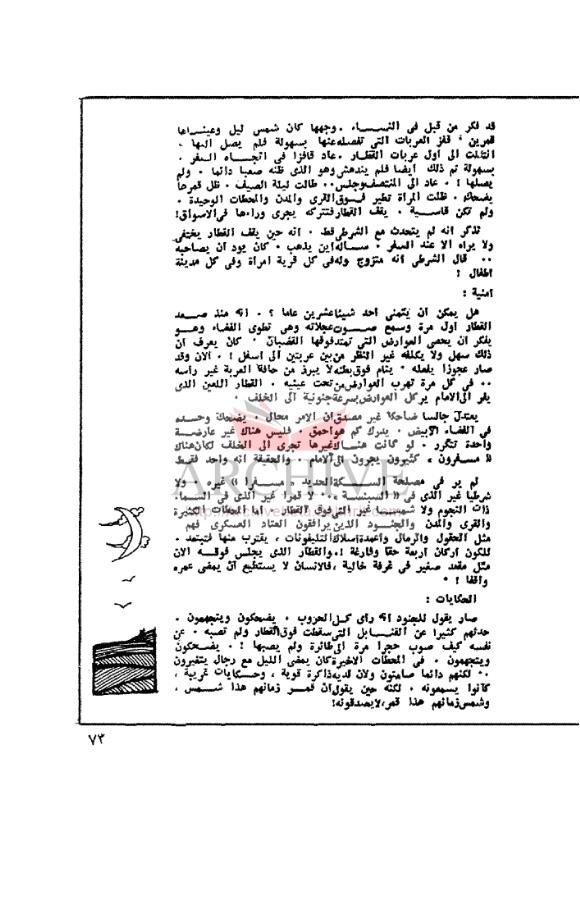 قد فكر من قبل فى النساء . وجهها كان شمس ليل وعيناها
قمرين . قفز العربات التى تفصله عنها بسهولة فلم يصل اليها .
انفلت الى اول عربات القطار . عاد قافزا فى اتجاه السفر .
بسهولة تم ذلك أيضا فلم يندهش وهو الذى ظنه صعبا دائما . ولم
يصلها ! . عاد الى المنتصف وجلس .. طالت ليلة الصيف . ظل قمرها
يضحك . ظلت المرأة تطير فوق القرى والمدن والمحطات الوحيدة .
ولم تكن قاسية . يقف القطار فتتركه يجرى وراءها فى الاسواق !
تذكر انه لم يتحدث مع الشرطى قط . انه حين يقف القطار يختفى
ولا يراه الا عند السفر . سأله اين يذهب . كان يود أن يصاحبه
.. قال الشرطى انه متزوج وله فى كل قرية امرأة وفى كل مدينة
اطفال !
أمنية :
هل يمكن أن يتمنى أحد شيئا عشرين عاما ؟ . انه منذ صعد
القطار أول مرة وسمع صوت عجلاته وهى تطوى الفضاء وهو
يفكر أن يحصى العوارض التى تمتد فوقها القضبان . كان يعرف أن
ذلك سهل ولا يكلفه غير النظر من بين عربتين الى أسفل ! . الآن وقد
صار عجوزا يفعله . ينام فوق بطنه لا يبرز من حافة العربة غير رأسه
.. فى كل مرة تهرب العوارض من تحت عينيه . القطار اللعين الذى
يفر الى الامام يركل العوارض بسرعة جنونية الى الخلف .
يعتدل جالسا ضاحكا غير مصدق أن الامر محال . يضحك وحده
فى الفضاء الابيض . يدرك كم هو أحمق . فليس هناك غير عارضة
واحدة تتكرر . لو كانت هناك غيرها تجرى الى الخلف لكان هناك
« مسفرون » كثيرون يجرون الى الامام . والحقيقة انه واحد فقط
لم ير فى مصلحة السكة الحديد « مسفرا » غيره . ولا
شرطيا غير الذى فى « السبنسة » .. لا قمرا غير الذى فى السماء
ذات النجوم ولا شمسا غير التى فوق القطار . أما المحطات الكثيرة
والقرى والمدن والجنود الذين يرافقون العتاد العسكرى فهم
مثل الحقول والرمال وأعمدة أسلاك التليفونات ، يقترب منها فتبتعد .
للكون أركان أربعة حقا وفارغة ! . والقطار الذى يجلس فوقه الآن
مثل مقعد صغير فى غرفة خالية ، فالانسان لا يستطيع أن يمضى عمره
واقفا ! .
الحكايات :
صار يقول للجنود انه رأى كل الحروب . يضحكون ويتجهمون .
حدثهم كثيرا عن القنابل التى سقطت فوق القطار ولم تصبه . عن
نفسه كيف صوب حجرا مرة الى طائرة ولم يصبها ! . يضحكون
ويتجهمون . فى المحطات الاخيرة كان يمضى الليل مع رجال يتغيرون
.. لكنهم دائما صامتون ولان لديه ذاكرة قوية ، وحكايات غريبة ،
كانوا يسمعونه . لكنه حين يقول ان قمر زمانهم هذا شمس ،
وشمس زمانهم هذا قمر ، لا يصدقونه !
ARCHIVE
٧٣